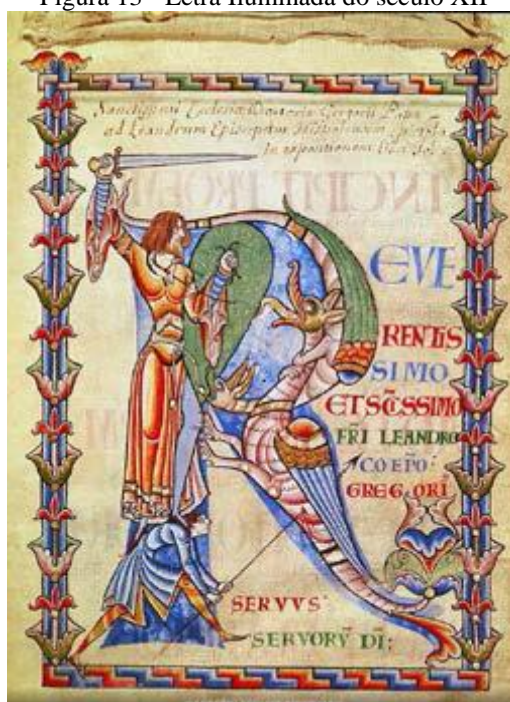 Figura 13 - Letra Iluminada do século XII
Sanctissimi
ad Leandrum Episcopum
In expositionem Libri Iob
INCIPIT PROEM
R EVE
RENTIS
SIMO
ET SC̄SSIMO
FR̄I LEANDRO
COEPŌ:
GREGORI
SERVVS
SERVORV̄ DĪ: